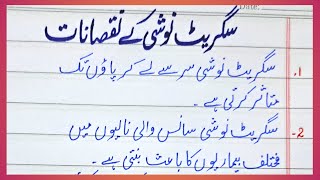 Date:
سگریٹ نوشی کے نقصانات
1. سگریٹ نوشی سر سے لے کر پاؤں تک
متاثر کرتی ہے۔
2- سگریٹ نوشی سانس والی نالیوں میں
مختلف بیماریوں کا باعث بنتی ہے۔